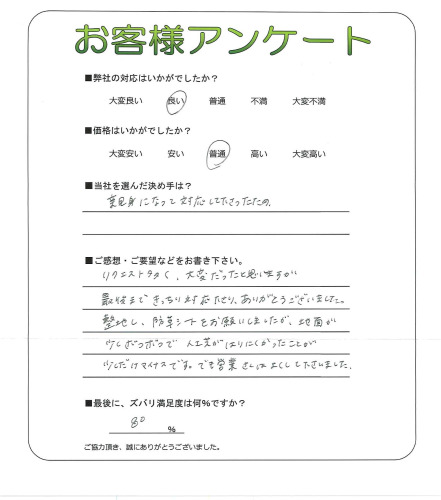 お客様アンケート
■弊社の対応はいかがでしたか?
大変良い 良い 普通 不満 大変不満
■価格はいかがでしたか?
大変安い 安い 普通 高い 大変高い
■当社を選んだ決め手は?
親身になって対応して下さったため
■ご感想・ご要望などをお書き下さい。
リクエスト多く、大変だったと思いますが
最後まできっちり対応下さり、ありがとうございました。
整地し、防草シートをお願いしましたが、地面が
少しボツボツで 人工芝がはりにくかったことが
少しだけマイナスです。でも営業さんはよくして下さいました。
■最後に、ズバリ満足度は何%ですか?
80 %
ご協力頂き、誠にありがとうございました。